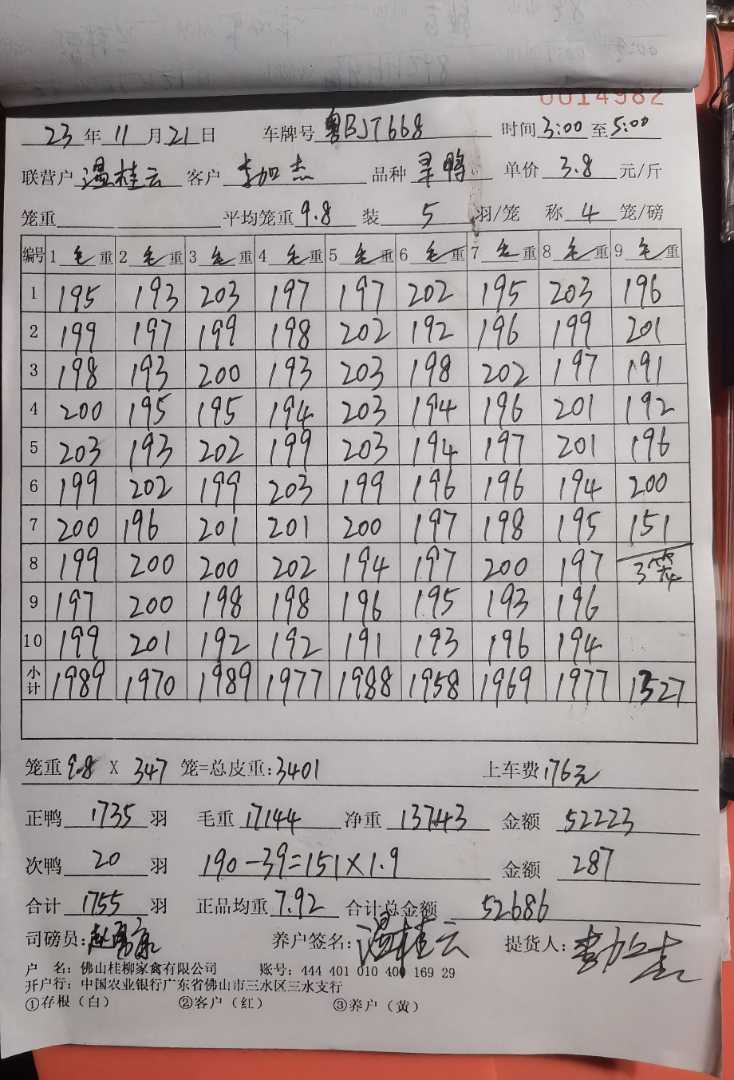 0014982
23年11月21日 车牌号 粤BJT668 时间3:00至5:00
联营户 温桂云 客户 李加杰 品种 旱鸭 单价 3.8 元/斤
笼重 平均笼重9.8 装 5 羽/笼 称 4 笼/磅
编号 1毛重 2毛重 3毛重 4毛重 5毛重 6毛重 7毛重 8毛重 9毛重
1 195 193 203 197 197 202 195 203 196
2 199 197 199 198 202 192 196 199 201
3 198 193 200 193 203 198 202 197 191
4 200 195 195 194 203 194 196 201 192
5 203 193 202 199 203 194 197 201 196
6 199 202 199 203 199 196 196 194 200
7 200 196 201 201 200 197 198 195 151
8 199 200 200 202 194 197 200 197 3笼
9 197 200 198 198 196 195 193 196
10 199 201 192 192 191 193 196 194
小计 1989 1970 1989 1977 1988 1958 1969 1977 1327
笼重 9.8 X 347 笼=总皮重:3401 上车费176元
正鸭 1735 羽 毛重 17144 净重 13743 金额 52223
次鸭 20 羽 190-39=151×1.9 金额 287
合计 1755 羽 正品均重 7.92 合计总金额 52686
司磅员: 养户签名:温桂云 提货人:李加杰
户 名:佛山桂柳家禽有限公司 账号:444 401 010 400 169 29
开户行:中国农业银行广东省佛山市三水区三水支行
①存根(白) ②客户(红) ③养户(黄)